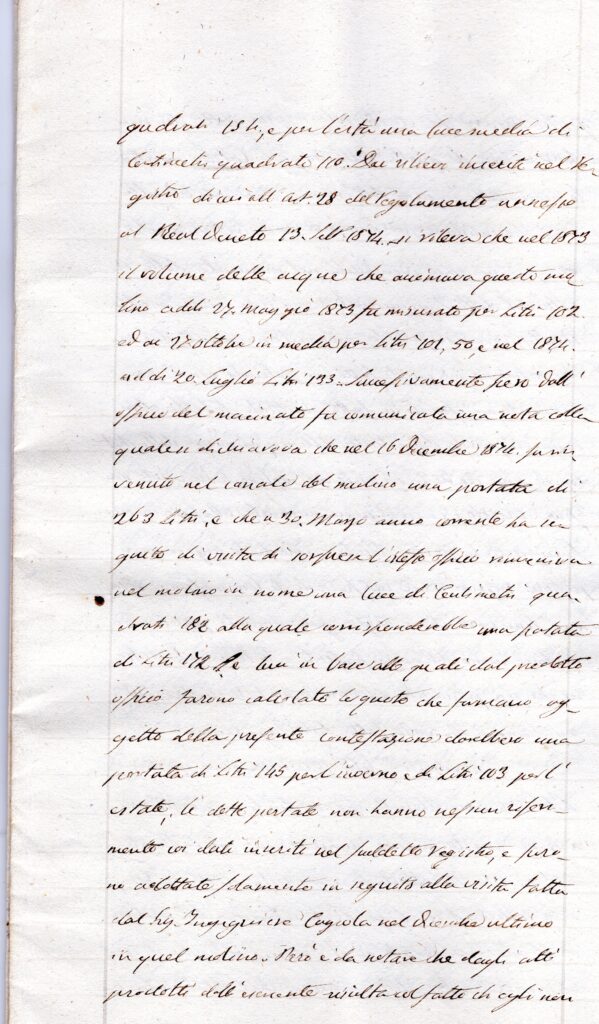 quadrati 154, e per l'està una luce media di
Centimetri quadrati 110. Dai rilievi inseriti nel Re-
gistro di cui all'Art. 28 del Regolamento annesso
al Real Decreto 13. Sett. 1874, si rileva che nel 1873
il volume delle acque che animava questo mu-
lino addì 27. Maggio 1873 fu misurato per Litri 102
ed ai 27 ottobre in media per Litri 101,50, e nel 1874.
addì 20. Luglio Litri 133. Successivamente però dall'
officio del macinato fu comunicata una nota colla
quale si dichiarava che nel 16 Dicembre 1874. fu rin-
venuto nel canale del mulino una portata di
263 Litri, e che a 30. Marzo anno corrente ha se-
guito di visita di sorpresa l'istesso officio rinveniva
nel molino in nome una luce di Centimetri qua-
drati 182 alla quale corrisponderebbe una portata
di Litri 172. Le luci in base alle quali dal predetto
officio furono calcolate le quote che formano og-
getto della presente contestazione darebbero una
portata di Litri 145 per l'inverno e di Litri 103 per l'
estate, le dette portate non hanno nessun riferi-
mento coi dati inseriti nel suddetto Registro, e furo-
no adottate solamente in seguito alla visita fatta
dal Sig. Ingegniere Cagiola nel Dicembre ultimo
in quel mulino. Però è da notare che dagli atti
prodotti dall'esercente risulta col fatto che egli non